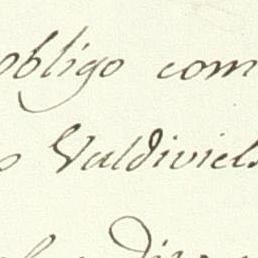 obligo com
o Valdiviels